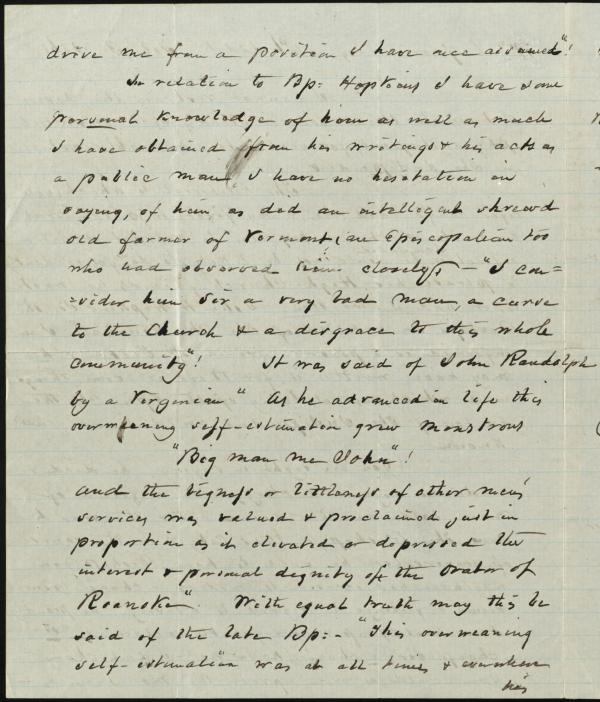 drive me from a position I have once assumed"!
In relation to Bp: Hopkins I have some
personal knowledge of him as well as much
I have obtained from his writings & his acts as
a public man, I have no hesitation in
saying, of him as did an intelligent shrewd
old farmer of Vermont, an Episcopalian too
who had observed him closely, - "I con=
=sider him Sir a very bad man, a curse
to the Church & a disgrace to this whole
community"! It was said of John Randolph
by a Virginian "As he advanced in life this
overweening self-estimation grew monstrous
"Big man me John"!
and the bigness or littleness of other men's
services was valued & proclaimed just in
proportion as it elevated or depressed the
interest & personal dignity of the Orator of
Roanoke". With equal truth may this be
said of the late Bp: - "This overweaning
self-estimation was at all times &
his